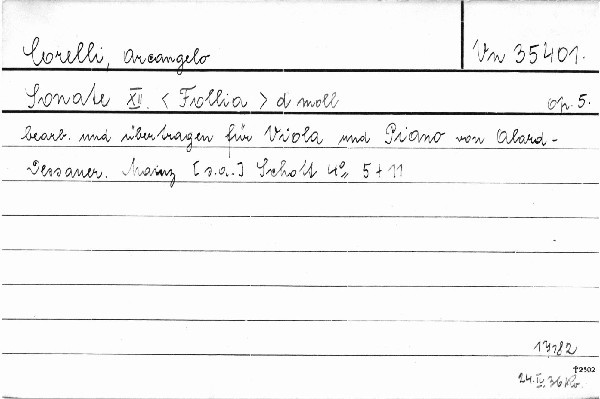 Corelli, Arcangelo Vn 35401.
Sonate XII. < Follia > d moll op. 5.
bearb. und übertragen für Viola und Piano von Alard-
Dessauer. Mainz [s.a.] Schott 4° 5 + 11
17.182
†2302
24.IV.36 Ko.